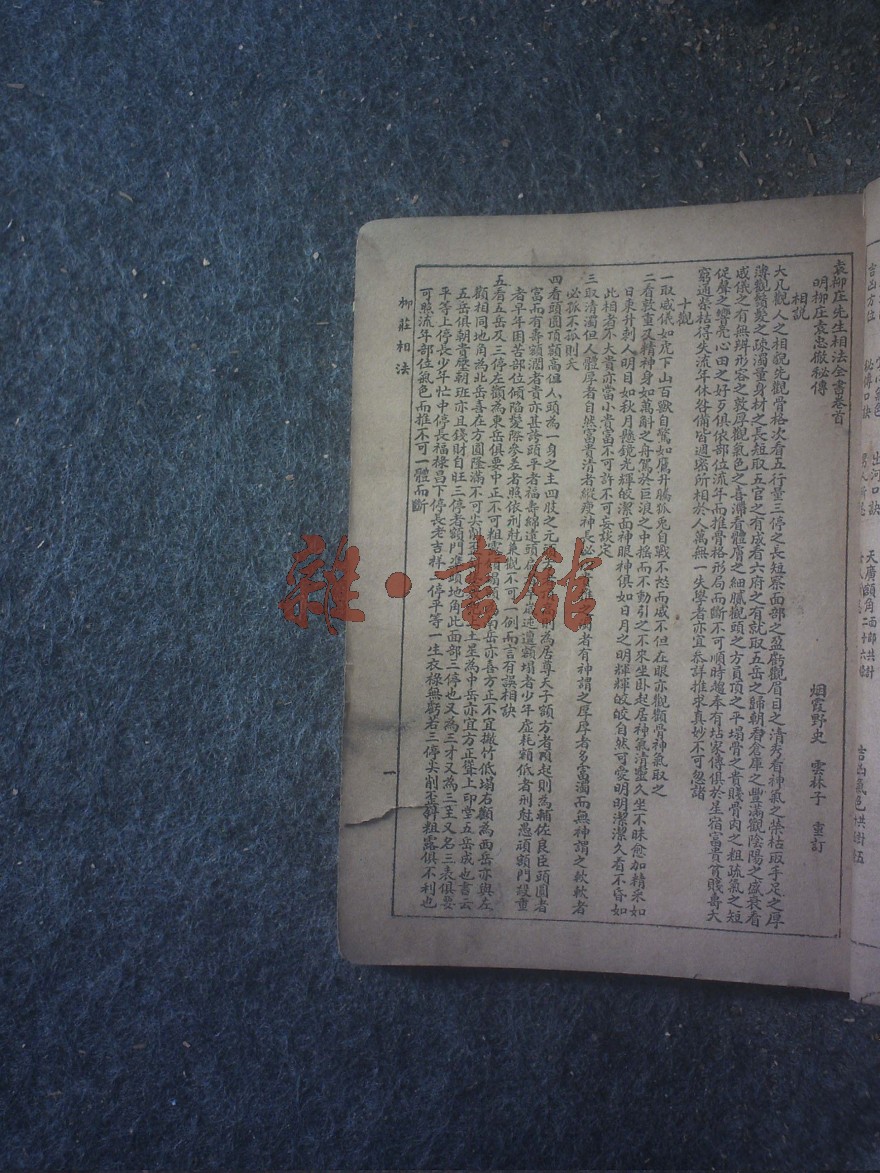 袁柳庄先生相法全書卷首
明柳庄袁忠徹秘傳
烟霞野史 雲林子 重訂
相說
大凡觀人之相貌先觀骨格次看五行量三停之長短察面部之盈虧觀眉目之清秀看神氣之榮枯取手足之厚
薄觀鬚髮之疎濁量身材之長短取五官之有成看六府之有就取五岳之歸朝看倉庫之豐滿觀陰陽之盛衰看
威儀之有無辨形容之敦厚觀氣色之喜滯看體膚之細膩觀頭之方員頂之平塌骨之貴賤骨肉之粗疏氣之短
促聲之響亮心田之好歹俱依部位流年而推骨格形局而斷不可順時趨奉有玷家傳俱於星宿富貴貧賤壽夭
窮通榮枯得失流年休咎備皆週密所相於人萬無一失學者亦宜叅詳推求真妙不可忽諸
十觀
一取威儀如虎下山百獸自驚如鷹升騰狐兎自戰不怒而威不但在眼亦觀顴骨神氣取之
二看敦重及精神身如萬斛之舟駕於巨浪之中搖而不動引之不來坐卧起居神氣清靈久坐不昧愈加精采如
日東升刺人明目如秋月懸鏡光輝皎潔面神眼神俱如日月之明輝輝皎皎自然可愛明明潔潔久看不昏如
此相者不大貴亦當小貴富不可許不可妄談定
三取清濁但人體厚者自然富貴清者縱瘦神長必 者有神謂之厚厚者多富濁而無神謂之軟軟者
必孤不孤則夭
四看頭圓頂額高但人頭為一身之主四肢之元 則為居尊天子額方者頂起則為輔佐良臣頭圓者
富而有壽額濶者貴亦甚誇頭平者福壽綿遠頭 早歲迍邅額塌者少年虛耗額低者刑尅愚頑額門殺重
者早年困苦部位傾陷髮際參差者照依刑尅兼觀不可一例而言有誤相訣
五看五岳及三停左顴為東岳俱要中正不可粗露 塌額 南岳亦喜方正不宜撇竹低塌右顴為西岳亦與左
顴相同地角為北岳喜在方圓隆滿不可尖削歪 土星為中岳亦宜方正聳上印堂五岳成也書云
五岳俱朝貴壓朝班亦且錢財自旺三停者額門準頭地角此面部三停也又為三才又為三主又名三表俱要
平等上停長少年忙中停長福祿昌下停長老吉祥三停平等一生衣祿無虧若三停尖削歪斜粗露俱不利也
可照流年部位氣色而推不可一體而斷
柳莊相法
一
雜·書館